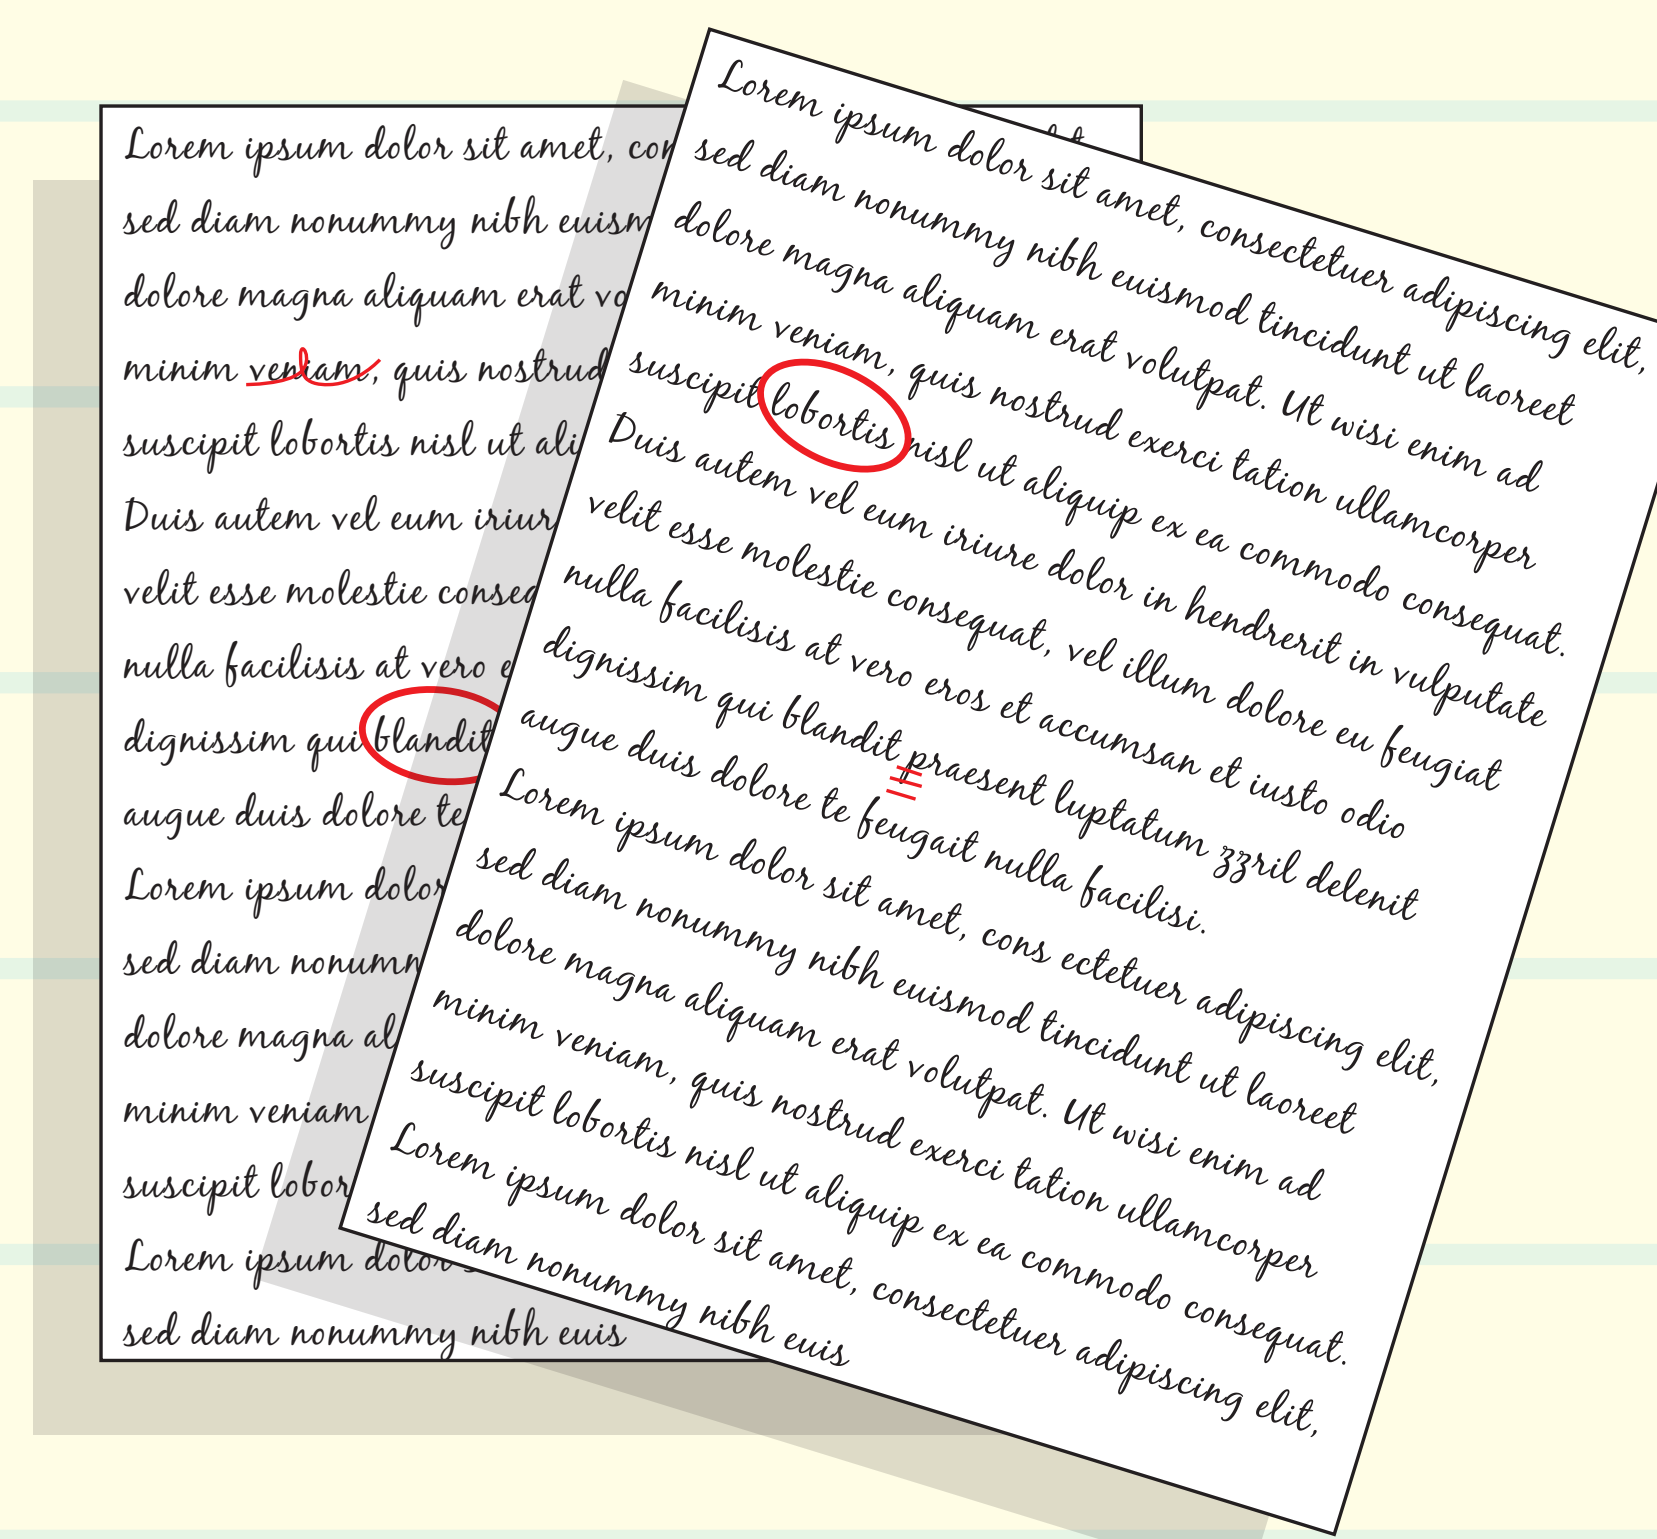 Lorem ipsum dolor sit amet,
sed diam nonummy nibh
dolore magna aliquam erat
minim veniam, quis nostrud
suscipit lobortis nisl ut
Duis autem vel eum
velit esse molestie
nulla facilisis at vero
dignissim qui blandit
augue duis dolore te
Lorem ipsum dolor
sed diam
dolore magna
minim veniam
suscipit
Lorem ipsum dolor
sed diam nonummy nibh euis
Lorem ipsum dolor sit amet, consectetuer adipiscing elit,
sed diam nonummy nibh euismod tincidunt ut laoreet
dolore magna aliquam erat volutpat. Ut wisi enim ad
minim veniam, quis nostrud exerci tation ullamcorper
suscipit lobortis nisl ut aliquip ex ea commodo consequat.
Duis autem vel eum iriure dolor in hendrerit in vulputate
velit esse molestie consequat, vel illum dolore eu feugiat
nulla facilisis at vero eros et accumsan et iusto odio
dignissim qui blandit praesent luptatum zzril delenit
augue duis dolore te feugait nulla facilisi.
Lorem ipsum dolor sit amet, cons ectetuer adipiscing elit,
sed diam nonummy nibh euismod tincidunt ut laoreet
dolore magna aliquam erat volutpat. Ut wisi enim ad
minim veniam, quis nostrud exerci tation ullamcorper
suscipit lobortis nisl ut aliquip ex ea commodo consequat.
Lorem ipsum dolor sit amet, consectetuer adipiscing elit,
sed diam nonummy nibh euis